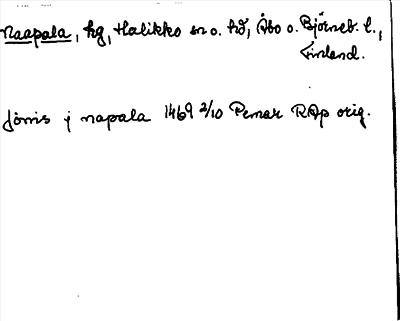 Naapala, hg, Halikko sn o. hd, Åbo o. Björneb. l.,
Finland.
Jönis j napala 1469 2/10 Pemar RAp orig.